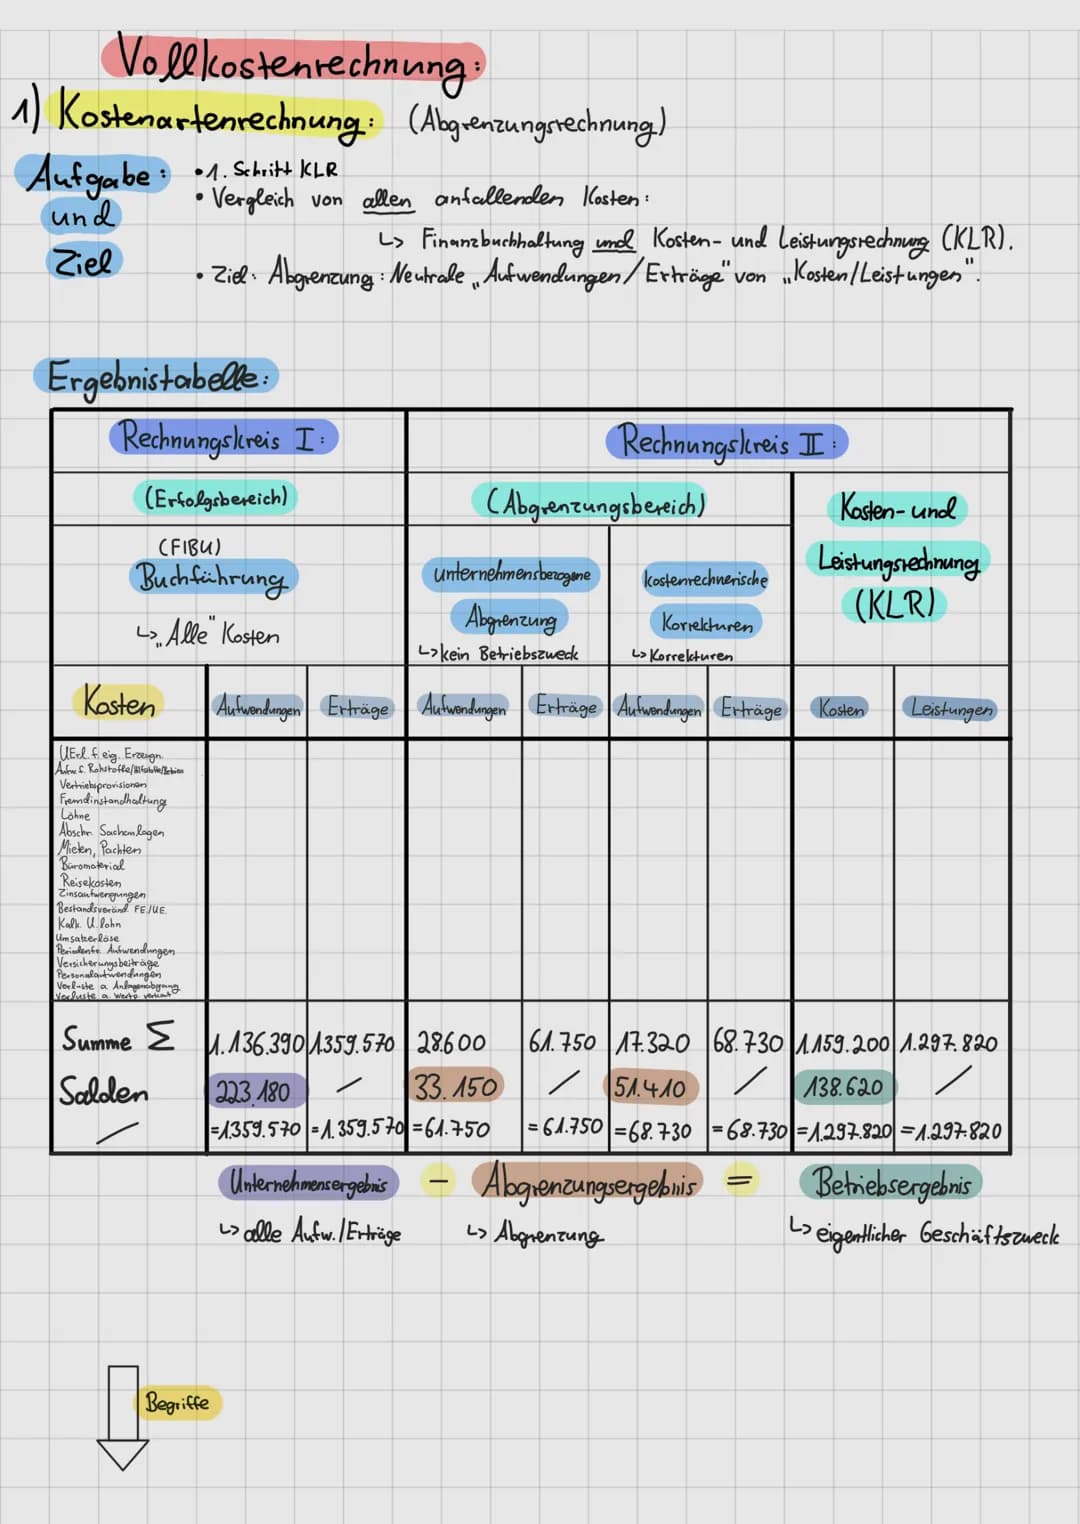 Vollkostenrechnung:
1) Kostenartenrechnung: (Abgrenzungsrechnung)
Aufgabe: und Ziel
• 1. Schritt KLR
• Vergleich von allen anfallenden Kosten:
↳ Finanzbuchhaltung und Kosten- und Leistungsrechnung (KLR).
• Ziel: Abgrenzung: Neutrale „Aufwendungen/Erträge" von „Kosten/Leistungen".
Ergebnistabelle:
Rechnungskreis I: Rechnungskreis II:
(Erfolgsbereich) (Abgrenzungsbereich) Kosten- und Leistungsrechnung (KLR)
(FIBU)
Buchführung
↳ „Alle" Kosten
unternehmensbezogene
Abgrenzung
↳ kein Betriebszweck
kostenrechnerische
Korrekturen
↳ Korrekturen
Kosten Aufwendungen Erträge Aufwendungen Erträge Aufwendungen Erträge Kosten Leistungen
UErl. f. eig. Erzeugn.
Aufw. f. Rohstoffe/Hilfstoffe/
Vertriebsprovisionen
Fremdinstandhaltung
Löhne
Abschr. Sachanlagen
Mieten, Pachten
Büromaterial
Reisekosten
Zinsaufwengungen
Bestandsveränd. FE./UE.
Kalk. U. lohn
Umsatzerlöse
Periodenfr. Aufwendungen
Versicherungsbeiträge
Personalaufwendungen
Verluste a. Anlagenabgang
Verluste a. Wertp. verkauf
Summe Σ 1.136.390 1.359.570 28.600 61.750 17.320 68.730 1.159.200 1.297.820
Salden 223.180 / 33.150 / 51.410 / 138.620 /
/ =1.359.570 =1.359.570 =61.750 =61.750 =68.730 =68.730 =1.297.820 =1.297.820
Unternehmensergebnis - Abgrenzungsergebnis = Betriebsergebnis
↳ alle Aufw./Erträge ↳ Abgrenzung ↳ eigentlicher Geschäftszweck
Begriffe